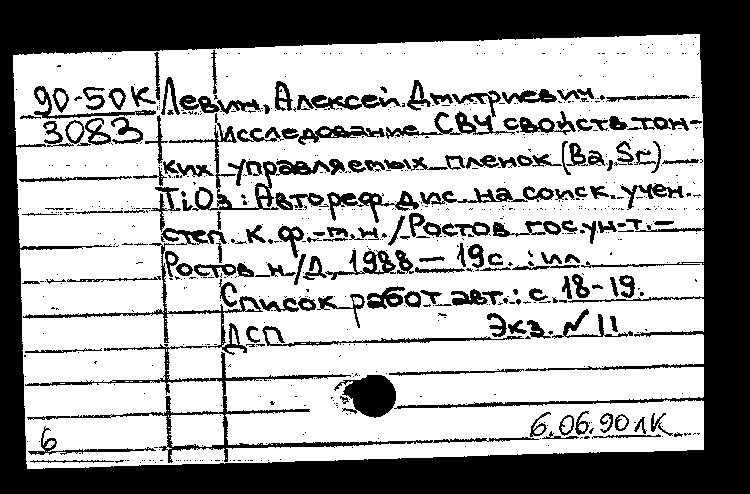 90-50К Левин, Алексей Дмитриевич.
3083 Исследование СВЧ свойств тон-
ких управляемых пленок (Ba, Sr)
TiO3 : Автореф дис. на соиск. учен.
степ. к. ф.-м. н. / Ростов гос. ун-т. –
Ростов н/Д, 1988. – 19 с. : ил.
Список работ авт. : с. 18-19.
ДСП Экз. № 11.
6 6.06.90 лк